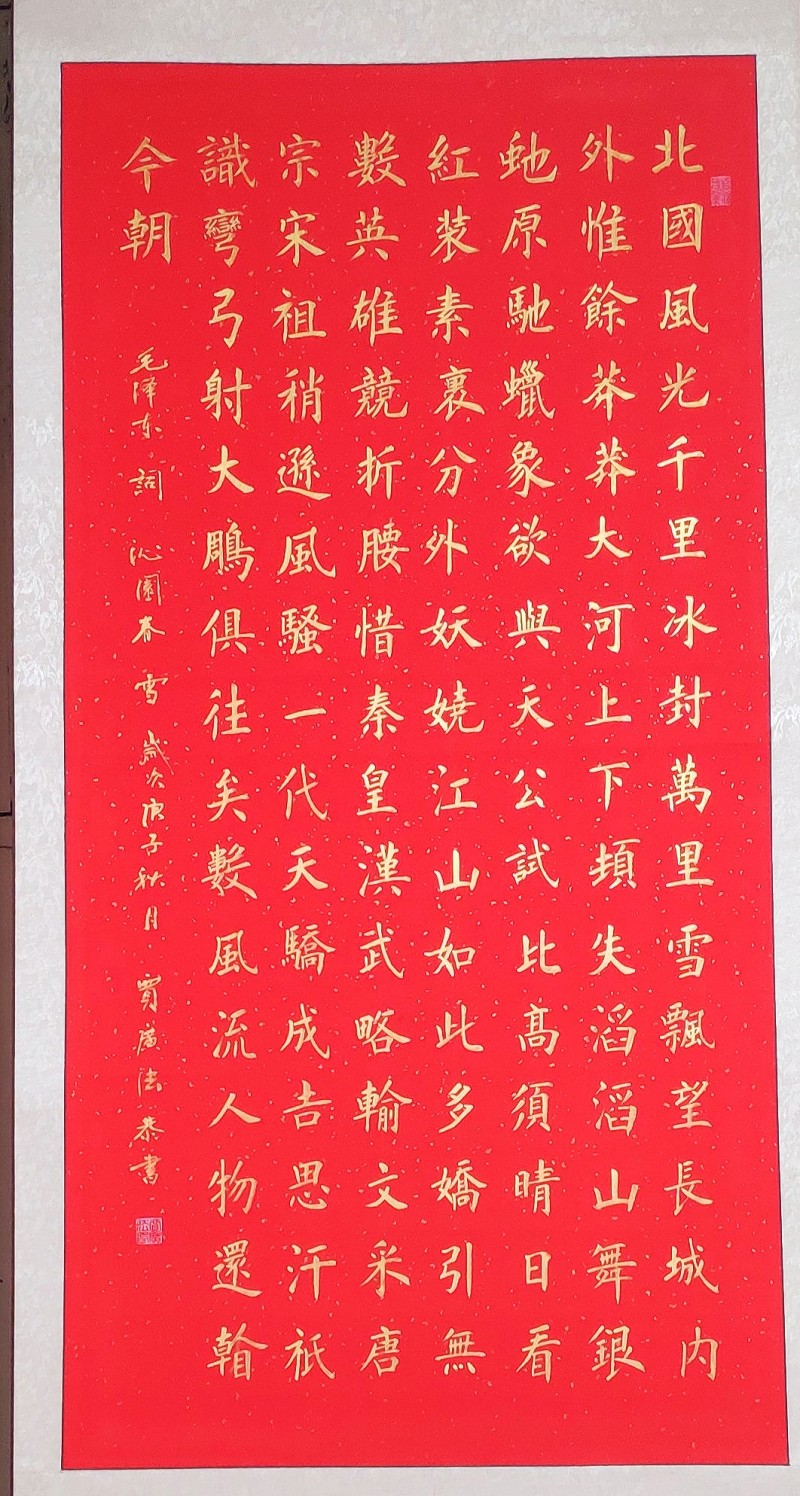 北國風光千里冰封萬里雪飄望長城內
外惟餘莽莽大河上下頓失滔滔山舞銀
虵原馳蠟象欲與天公試比髙須晴日看
紅裝素裹分外妖嬈江山如此多嬌引無
數英雄競折腰惜秦皇漢武略輸文采唐
宗宋祖稍遜風騷一代天驕成吉思汗祇
識彎弓射大鵰俱往矣數風流人物還看
今朝 毛泽东詞 沁園春 雪 歲次庚子秋月 賈廣法恭書